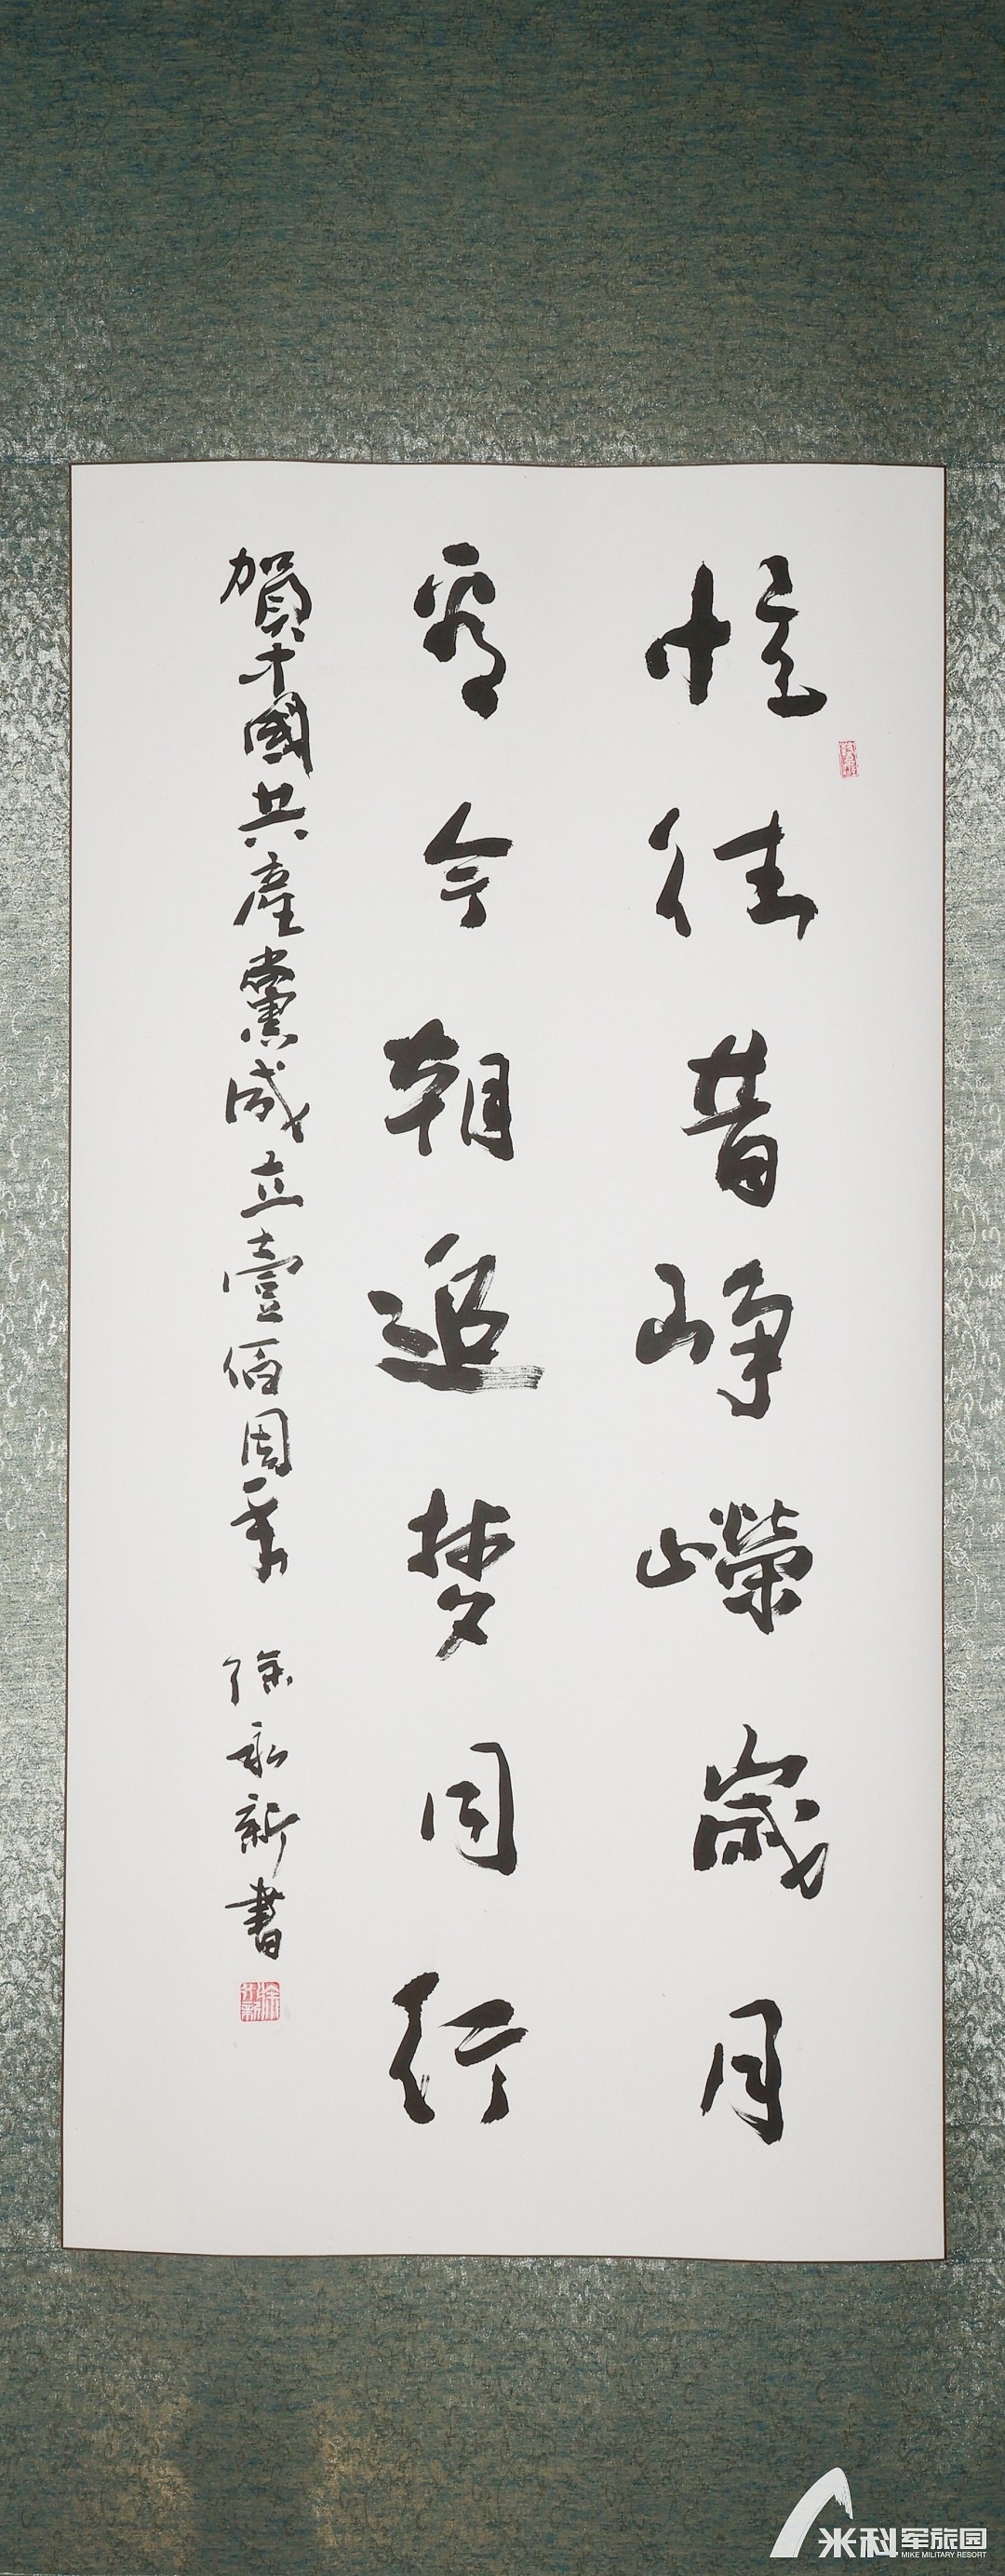 忆往昔峥嵘歲月
看今朝追梦同行
賀中國共産黨成立壹佰周年
徐永新書
米科军旅园
MIKE MILITARY RESORT